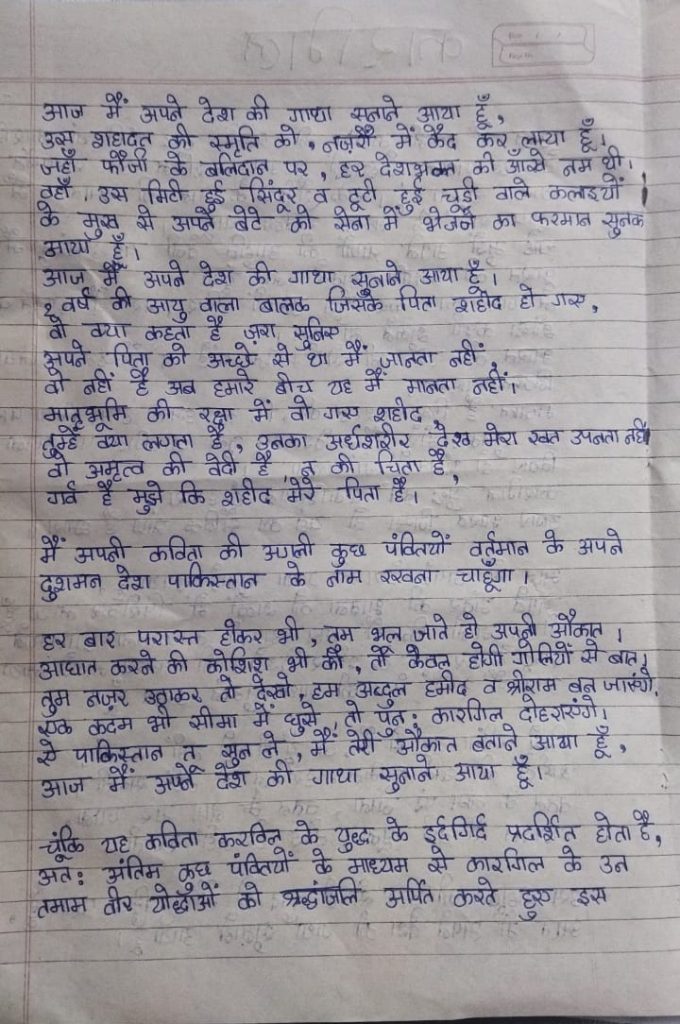 आज मैं अपने देश की गाथा सुनाने आया हूँ,
उस शहादत की स्मृति को, नज़रों में कैद कर लाया हूँ।
जहाँ फौजी के बलिदान पर, हर देशभक्त की आँखे नम थी।
वहाँ उस मिटी हुई सिंदूर व टूटी हुई चूड़ी वाले कलाइयों
के मुख से अपने बेटे को सेना में भेजने का फरमान सुनक
आया हूँ।
आज मैं अपने देश की गाथा सुनाने आया हूँ।
वर्ष की आयु वाला बालक जिसके पिता शहीद हो गए,
वो क्या कहता है ज़रा सुनिए
अपने पिता को अच्छे से था मैं जानता नहीं,
वो नहीं है अब हमारे बीच यह मैं मानता नहीं।
मातृभूमि की रक्षा में वो गए शहीद
तुम्हें क्या लगता है, उनका अर्धशरीर देख मेरा रक्त उपनता नहीं
वो अमृत्व की वेदी है न की चिता है,
गर्व है मुझे कि शहीद मेरे पिता है।
मैं अपनी कविता की अगली कुछ पंक्तियों वर्तमान के अपने
दुशमन देश पाकिस्तान के नाम रखना चाहूँगा।
हर बार परास्त होकर भी, तुम भूल जाते हो अपनी औकात।
आघात करने की कोशिश भी की, तो केवल होगी गोलियों से बात।
तुम नज़र उठाकर तो देखो, हम अब्दुल हमीद व श्रीराम बन जाएंगे,
एक कदम भी सीमा में घुसे, तो पुनः कारगिल दोहराएंगे।
ऐ पाकिस्तान तू सुन ले, मैं तेरी औकात बताने आया हूँ,
आज मैं अपने देश की गाथा सुनाने आया हूँ।
चूंकि यह कविता करगिल के युद्ध के इर्दगिर्द प्रदर्शित होता है,
अतः अंतिम कुछ पंक्तियों के माध्यम से कारगिल के उन
तमाम वीर योद्धाओं को श्रद्धांजलि अर्पित करते हुए इस